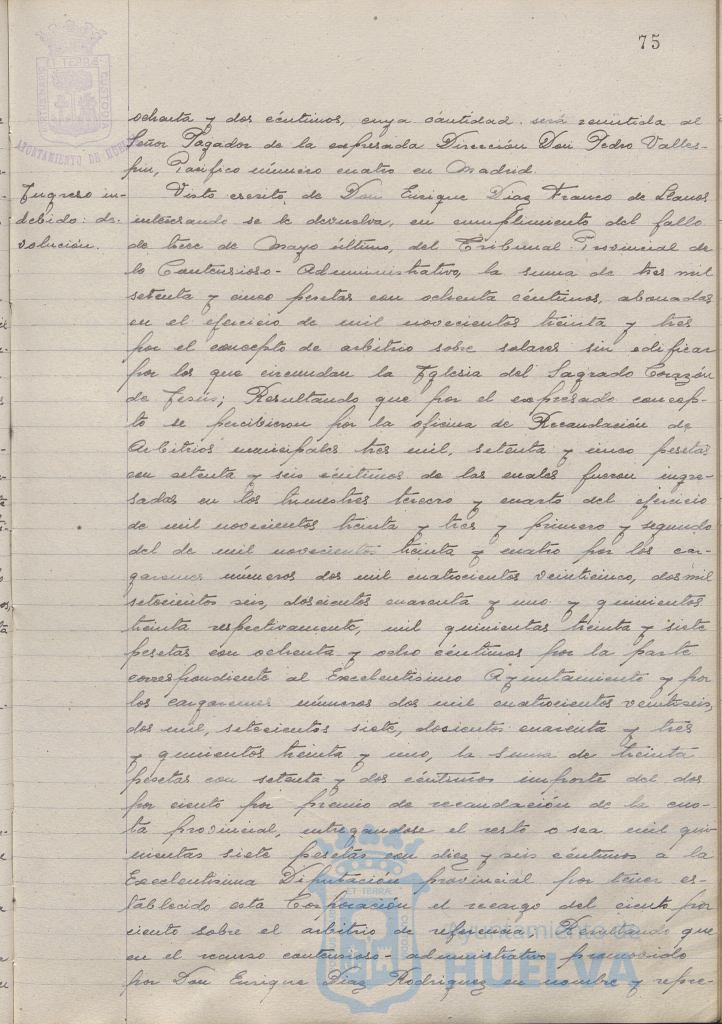 75
ochenta y dos céntimos, cuya cantidad será remitida al
Señor Pagador de la expresada Dirección Don Pedro Valles-
pin, Pacífico número cuatro en Madrid.
Ingreso in-
debido: de-
volución.
Visto escrito de Don Enrique Díaz Franco de Llanos
interesando se le devuelva, en cumplimiento del fallo
de trece de Mayo último, del Tribunal Provincial de
lo Contencioso-Administrativo, la suma de tres mil
setenta y cinco pesetas con ochenta céntimos, abonadas
en el ejercicio de mil novecientos treinta y tres
por el concepto de arbitrio sobre solares sin edificar
por los que circundan la Iglesia del Sagrado Corazón
de Jesús; Resultando que por el expresado concep-
to se percibieron por la oficina de Recaudación de
Arbitrios municipales tres mil, setenta y cinco pesetas
con setenta y seis céntimos de las cuales fueron ingre-
sadas en los trimestres tercero y cuarto del ejercicio
de mil novecientos treinta y tres y primero y segundo
del de mil novecientos treinta y cuatro por los car-
garemes números dos mil cuatrocientos veinticinco, dos mil
setecientos seis, doscientos cuarenta y uno y quinientos
treinta respectivamente, mil quinientas treinta y siete
pesetas con ochenta y ocho céntimos por la parte
correspondiente al Excelentísimo Ayuntamiento y por
los cargaremes números dos mil cuatrocientos veintiseis,
dos mil, setecientos siete, doscientos cuarenta y tres
y quinientos treinta y uno, la suma de treinta
pesetas con setenta y dos céntimos importe del dos
por ciento por premio de recaudación de la cuo-
ta provincial, entregandose el resto o sea mil qui-
nientas siete pesetas con diez y seis céntimos a la
Excelentísima Diputación provincial por tener es-
tablecido esta Corporación el recargo del ciento por
ciento sobre el arbitrio de referencia. Resultando que
en el recurso contencioso-administrativo promovido
por Don Enrique Díaz Rodríguez en nombre y repre-
AYUNTAMIENTO DE HUELVA
Ayuntamiento de
HUELVA